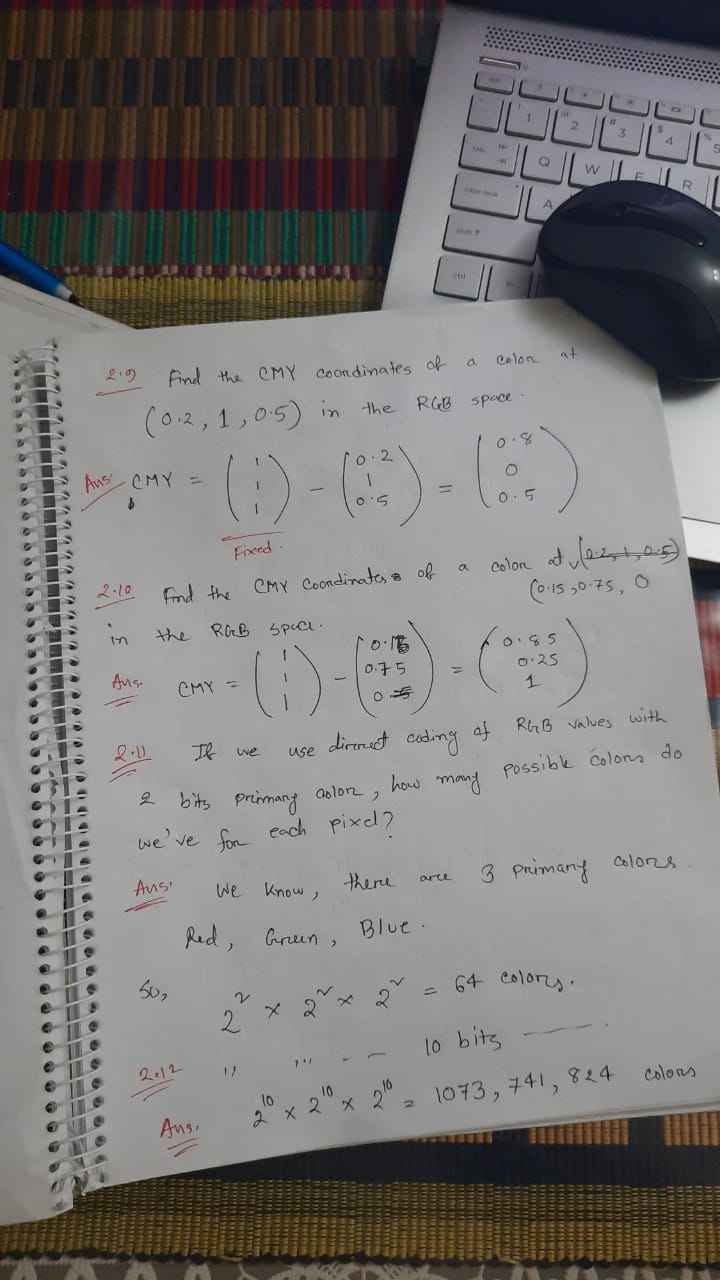 1 2 3 4 5
tab Q W E R
caps lock A
shift
ctrl fn
2.9 Find the CMY coordinates of a color at
(0.2, 1, 0.5) in the RGB space.
Ans: CMY = (1 1 1) - (0.2 1 0.5) = (0.8 0 0.5)
Fixed.
2.10 Find the CMY Coordinates of a color at (0.2, 1, 0.5)
(0.15, 0.75, 0
in the RGB space.
Ans. CMY = (1 1 1) - (0.15 0.75 0) = (0.85 0.25 1)
2.11 If we use dirrect coding of RGB values with
2 bits primary color, how many possible colors do
we've for each pixel?
Ans: We know, there are 3 primary colors.
Red, Green, Blue.
So,
2² × 2² × 2² = 64 colors.
2.12 " " - - 10 bits ——
Ans. 2¹⁰ × 2¹⁰ × 2¹⁰ = 1073,741,824 colors